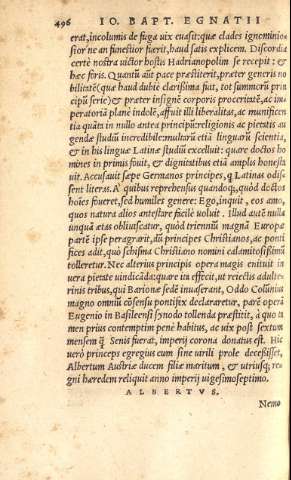 496 IO. BAPT. EGNATII
erat, incolumis de fuga uix euasit: quæ clades ignominio
sior ne an funestior fuerit, haud satis explicem. Discordia
certe nostra uictor hostis Hadrianopolim se recepit: &
hæc foris. Quantũ aũt pace præstiterit, præter generis no
bilitatẽ (quæ haud dubie clarissima fuit, tot summorũ prin
cipũ serie) & præter insignẽ corporis proceritatẽ, ac im
peratoriã planè indolẽ, affuit illi liberalitas, ac munificen
tia quãta in nullo antea principũ: religionis ac pietatis au
gendæ studiũ incredibile: multarũ etiã linguarũ scientia,
& in his linguæ Latinæ studiũ excelluit: quare doctos ho
mines in primis fouit, & dignitatibus etiã amplis honesta
uit. Accusauit sæpe Germanos principes, q Latinas odis
sent literas. A' quibus reprehensus quandoq;, quòd doctos
hoĩes foueret, sed humiles genere: Ego, inquit, eos amo,
quos natura alios antestare facilè uoluit. Illud autẽ nulla
unquã ætas obliuiscatur, quòd triennuũ magnã Europæ
partẽ ipse peragrarit, dũ principes Christianos, ac ponti
fices adit, quò schisma Christiano nomini calamitosissimũ
tolleretur. Nec alterius principis opera magis enituit in
uera pietate uindicãda: quare ita effecit, ut reiectis adulte
rinis tribus, qui Barionæ sedẽ inuaserant, Oddo Colũnius
magno omniũ cõsensu pontifex declararetur, parẽ operã
Eugenio in Basileensi synodo tollenda præstitit, à quo ta
men prius contemptim penè habitus, ac uix post sextum
mensem q̃ Senis fuerat, imperij corona donatus est. Hic
uerò princeps egregius cum sine uirili prole decessisset,
Albertum Austriæ ducem filiæ maritum, & utriusq; re
gni hæredem reliquit anno imperij uigesimoseptimo.
ALBERTVS.
Nemo